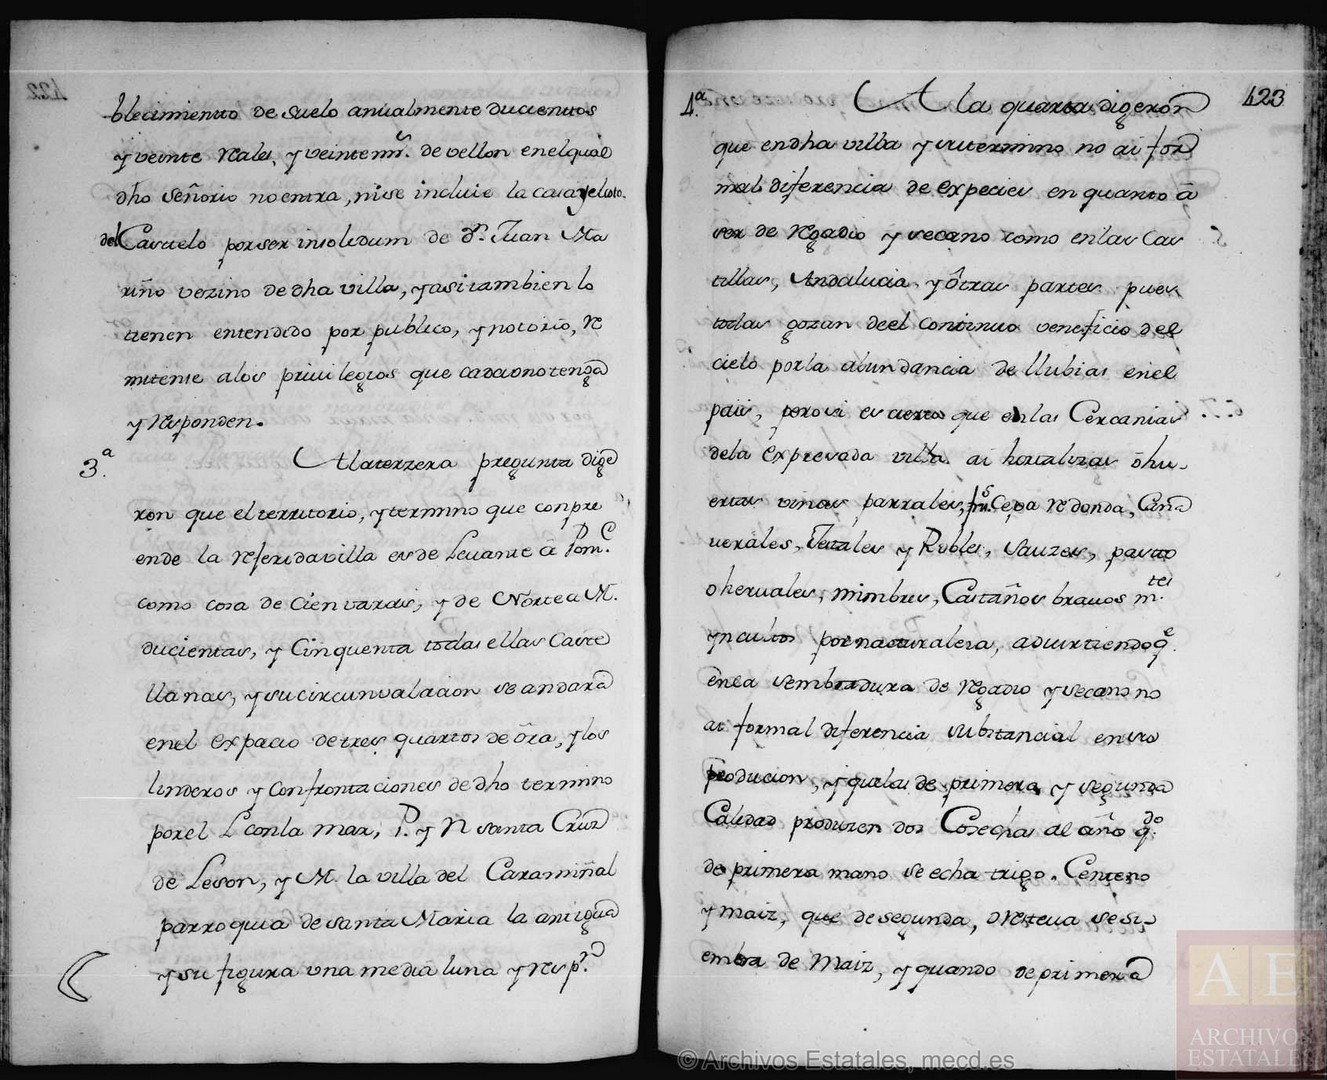 blecimiento de suelo anualmente ducientos
y veinte reales, y veinte mrs. de vellon enelqual
dho señorio no entra, nise incluie la casa yelsoto.
del Casuelo porser insolidum de dn. Juan Ma
riño vezino de dha villa, y asi tambien lo
tienen entendido por publico, y notorio, re
mitense alos privilegios que cadauno tenga
y responden.
3.a Alaterzera pregunta dige
ron que el territorio, y termino que conpre
ende la referida villa es de Levante â Pom.e
como cosa de cien varas, y de Norte a M.
ducientas, y Cinquenta todas ellas Caste
llanas, y su circunvalacion se andara
enel expacio de tres quartos de ôra, y los
linderos y Confrontaciones de dho termino
por el L. con la mar, P. y N santa Cruz
de Leson, y M. la villa del Caramiñal
parroquia de santa Maria la antigua
y su figura una media luna y resp.n
423
4.a A la quarta digeron
que endha villa y sutermino no ai for
mal diferencia de expecies en quanto â
ser de regadio y secano como enlas Cas
tillas, Andalucia y ôtras partes pues
todas gozan deel continuo veneficio del
cielo por la abundancia de llubias enel
pais, pero si es cierto que enlas Cercanias
dela expresada villa ai hortalizas ôhu-
ertas viñas parrales, Cepa redonda, Caña
verales, Tojales y Robles, sauzes, pasto
o hervales, mimbres, Castaños bravos m.tes
yncultos por naturalesa, advirtiendo q.e
enla sembradura de regadio y secano no
ai formal diferencia substancial en su
producion, y quelas de primera y segunda
Calidad produzen dos Cosechas al año q.do
de primera mano se echa trigo, Centeno
y maiz, que de segunda, o resteva se si-
embra de Maiz, y quando de primera
© Archivos Estatales, mecd.es
AE
ARCHIVOS
ESTATALES